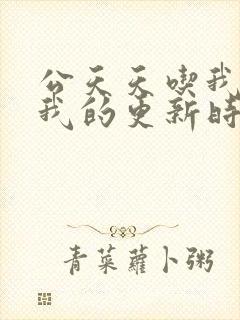 公天天喫我
我的更新時
青菜蘿卜粥